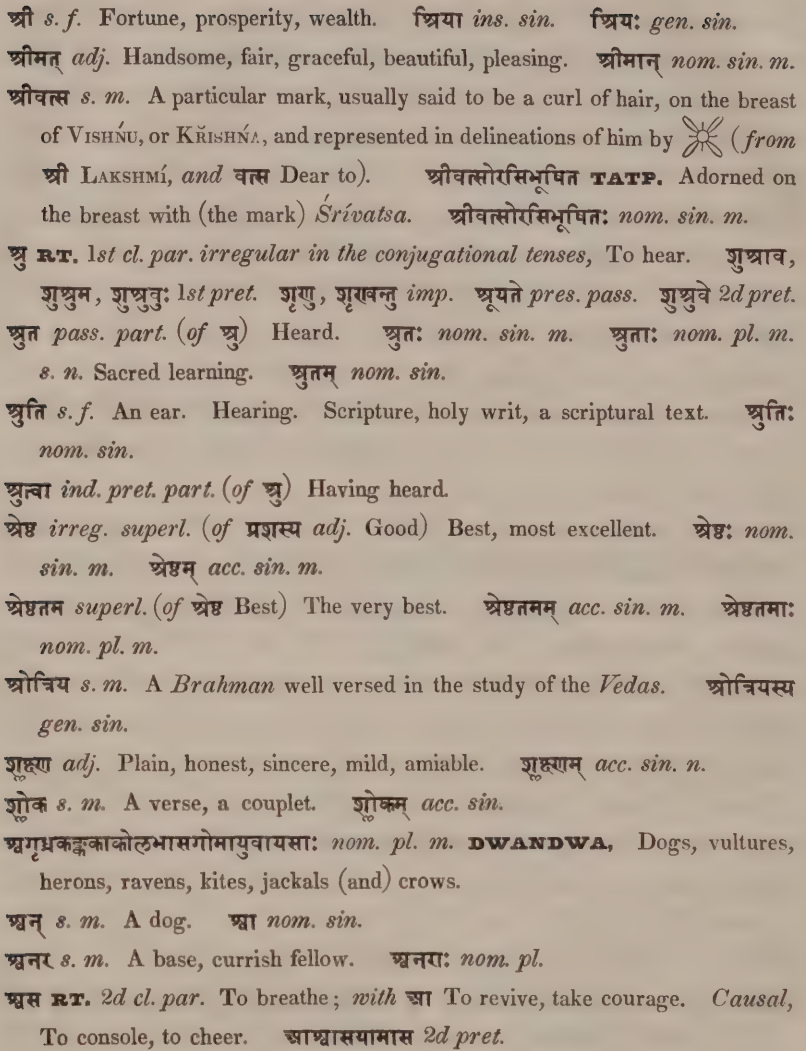 श्री s. f. Fortune, prosperity, wealth. श्रिया ins. sin. श्रियः gen. sin.
श्रीमत् adj. Handsome, fair, graceful, beautiful, pleasing. श्रीमान् nom. sin. m.
श्रीवत्स s. m. A particular mark, usually said to be a curl of hair, on the breast
of VISHŃU, or KŘISHŃA, and represented in delineations of him by (from
श्री LAKSHMÍ, and वत्स Dear to). श्रीवत्सोरसिभूषित TATP. Adorned on
the breast with (the mark) Śrívatsa. श्रीवत्सोरसिभूषितः nom. sin. m.
श्रु RT. 1st cl. par. irregular in the conjugational tenses, To hear. शुश्राव,
शुश्रुम, शुश्रुवुः 1st pret. शृणु, शृण्वन्तु imp. श्रूयते pres. pass. शुश्रुवे 2d pret.
श्रुत pass. part. (of श्रु) Heard. श्रुतः nom. sin. m. श्रुताः nom. pl. m.
s. n. Sacred learning. श्रुतम् nom. sin.
श्रुति s. f. An ear. Hearing. Scripture, holy writ, a scriptural text. श्रुतिः
nom. sin.
श्रुत्वा ind. pret. part. (of श्रु) Having heard.
श्रेष्ठ irreg. superl. (of प्रशस्य adj. Good) Best, most excellent. श्रेष्ठः nom.
sin. m. श्रेष्ठम् acc. sin. m.
श्रेष्ठतम superl. (of श्रेष्ठ Best) The very best. श्रेष्ठतमम् acc. sin. m. श्रेष्ठतमाः
nom. pl. m.
श्रोत्रिय s. m. A Brahman well versed in the study of the Vedas. श्रोत्रियस्य
gen. sin.
श्लक्ष्ण adj. Plain, honest, sincere, mild, amiable. श्लक्ष्णम् acc. sin. n.
श्लोक s. m. A verse, a couplet. श्लोकम् acc. sin.
श्वगृध्रकङ्ककाकोलभासगोमायुवायसाः nom. pl. m. DWANDWA, Dogs, vultures,
herons, ravens, kites, jackals (and) crows.
श्वन् s. m. A dog. श्वा nom. sin.
श्वनर s. m. A base, currish fellow. श्वनराः nom. pl.
श्वस RT. 2d cl. par. To breathe; with आ To revive, take courage. Causal,
To console, to cheer. आश्वासयामास 2d pret.